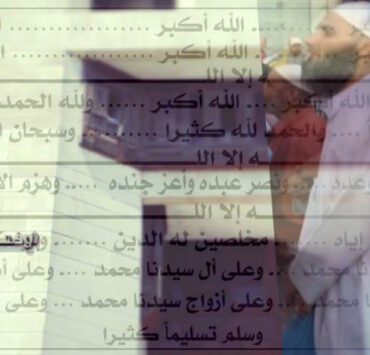 ـبر .......... الله أكبر .... الله أكبر
ـبر .......... الله أكبر ............. ا
ـه إلا اللـ
الله أكبر .... الله أكبر ...... ولله الحمد
.... والحمد لله كثيرا .......... وسبحان ا
ـه إلا اللـ
وعده .... ونصر عبده وأعز جنده ..... وهزم الأ
ـه إلا اللـ
إياه ....... مخلصين له الدين ........
ـنا محمد .... وعلى آل سيدنا محمد .... وعلى أ
محمد .... وعلى أزواج سيدنا محمد ... وعلى
وسلم تسليماً كثيرا